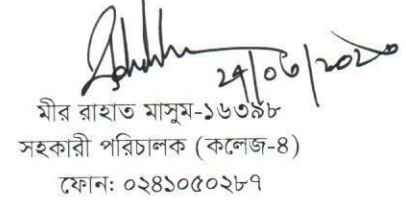 ২৫/০৬/২০২০
মীর রাহাত মাসুম-১৬৩৯৮
সহকারী পরিচালক (কলেজ-৪)
ফোন: ০২৪১০৫০২৮৭